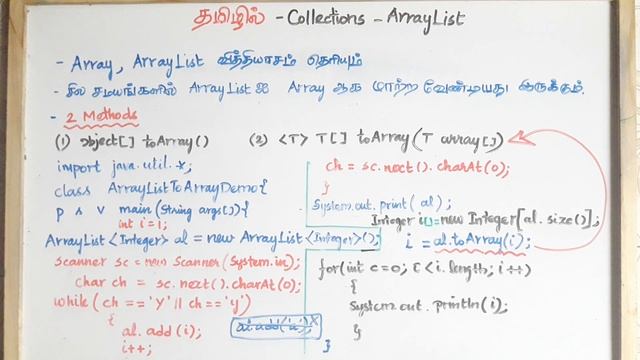 தமிழில் - Collections - ArrayList
- Array, ArrayList வித்தியாசம் தெரியும்
- சில சமயங்களில் ArrayList ஐ Array ஆக மாற்ற வேண்டியது இருக்கும்.
- 2 Methods
(1) object[] toArray()
(2) <T> T[] toArray(T array[])
import java.util.*;
class ArrayListToArrayDemo{
p s v main(String args[]){
int i=1;
ArrayList<Integer> al = new ArrayList<Integer>();
scanner sc = new scanner(System.in);
char ch = sc.next().charAt(0);
while(ch == 'Y' || ch == 'y')
{
al.add(i);
i++;
ch = sc.next().charAt(0);
}
System.out.print(al);
Integer i[]=new Integer[al.size()];
i = al.toArray(i);
for(int c=0; c<i.length; i++)
{
System.out.println(i);
}
}